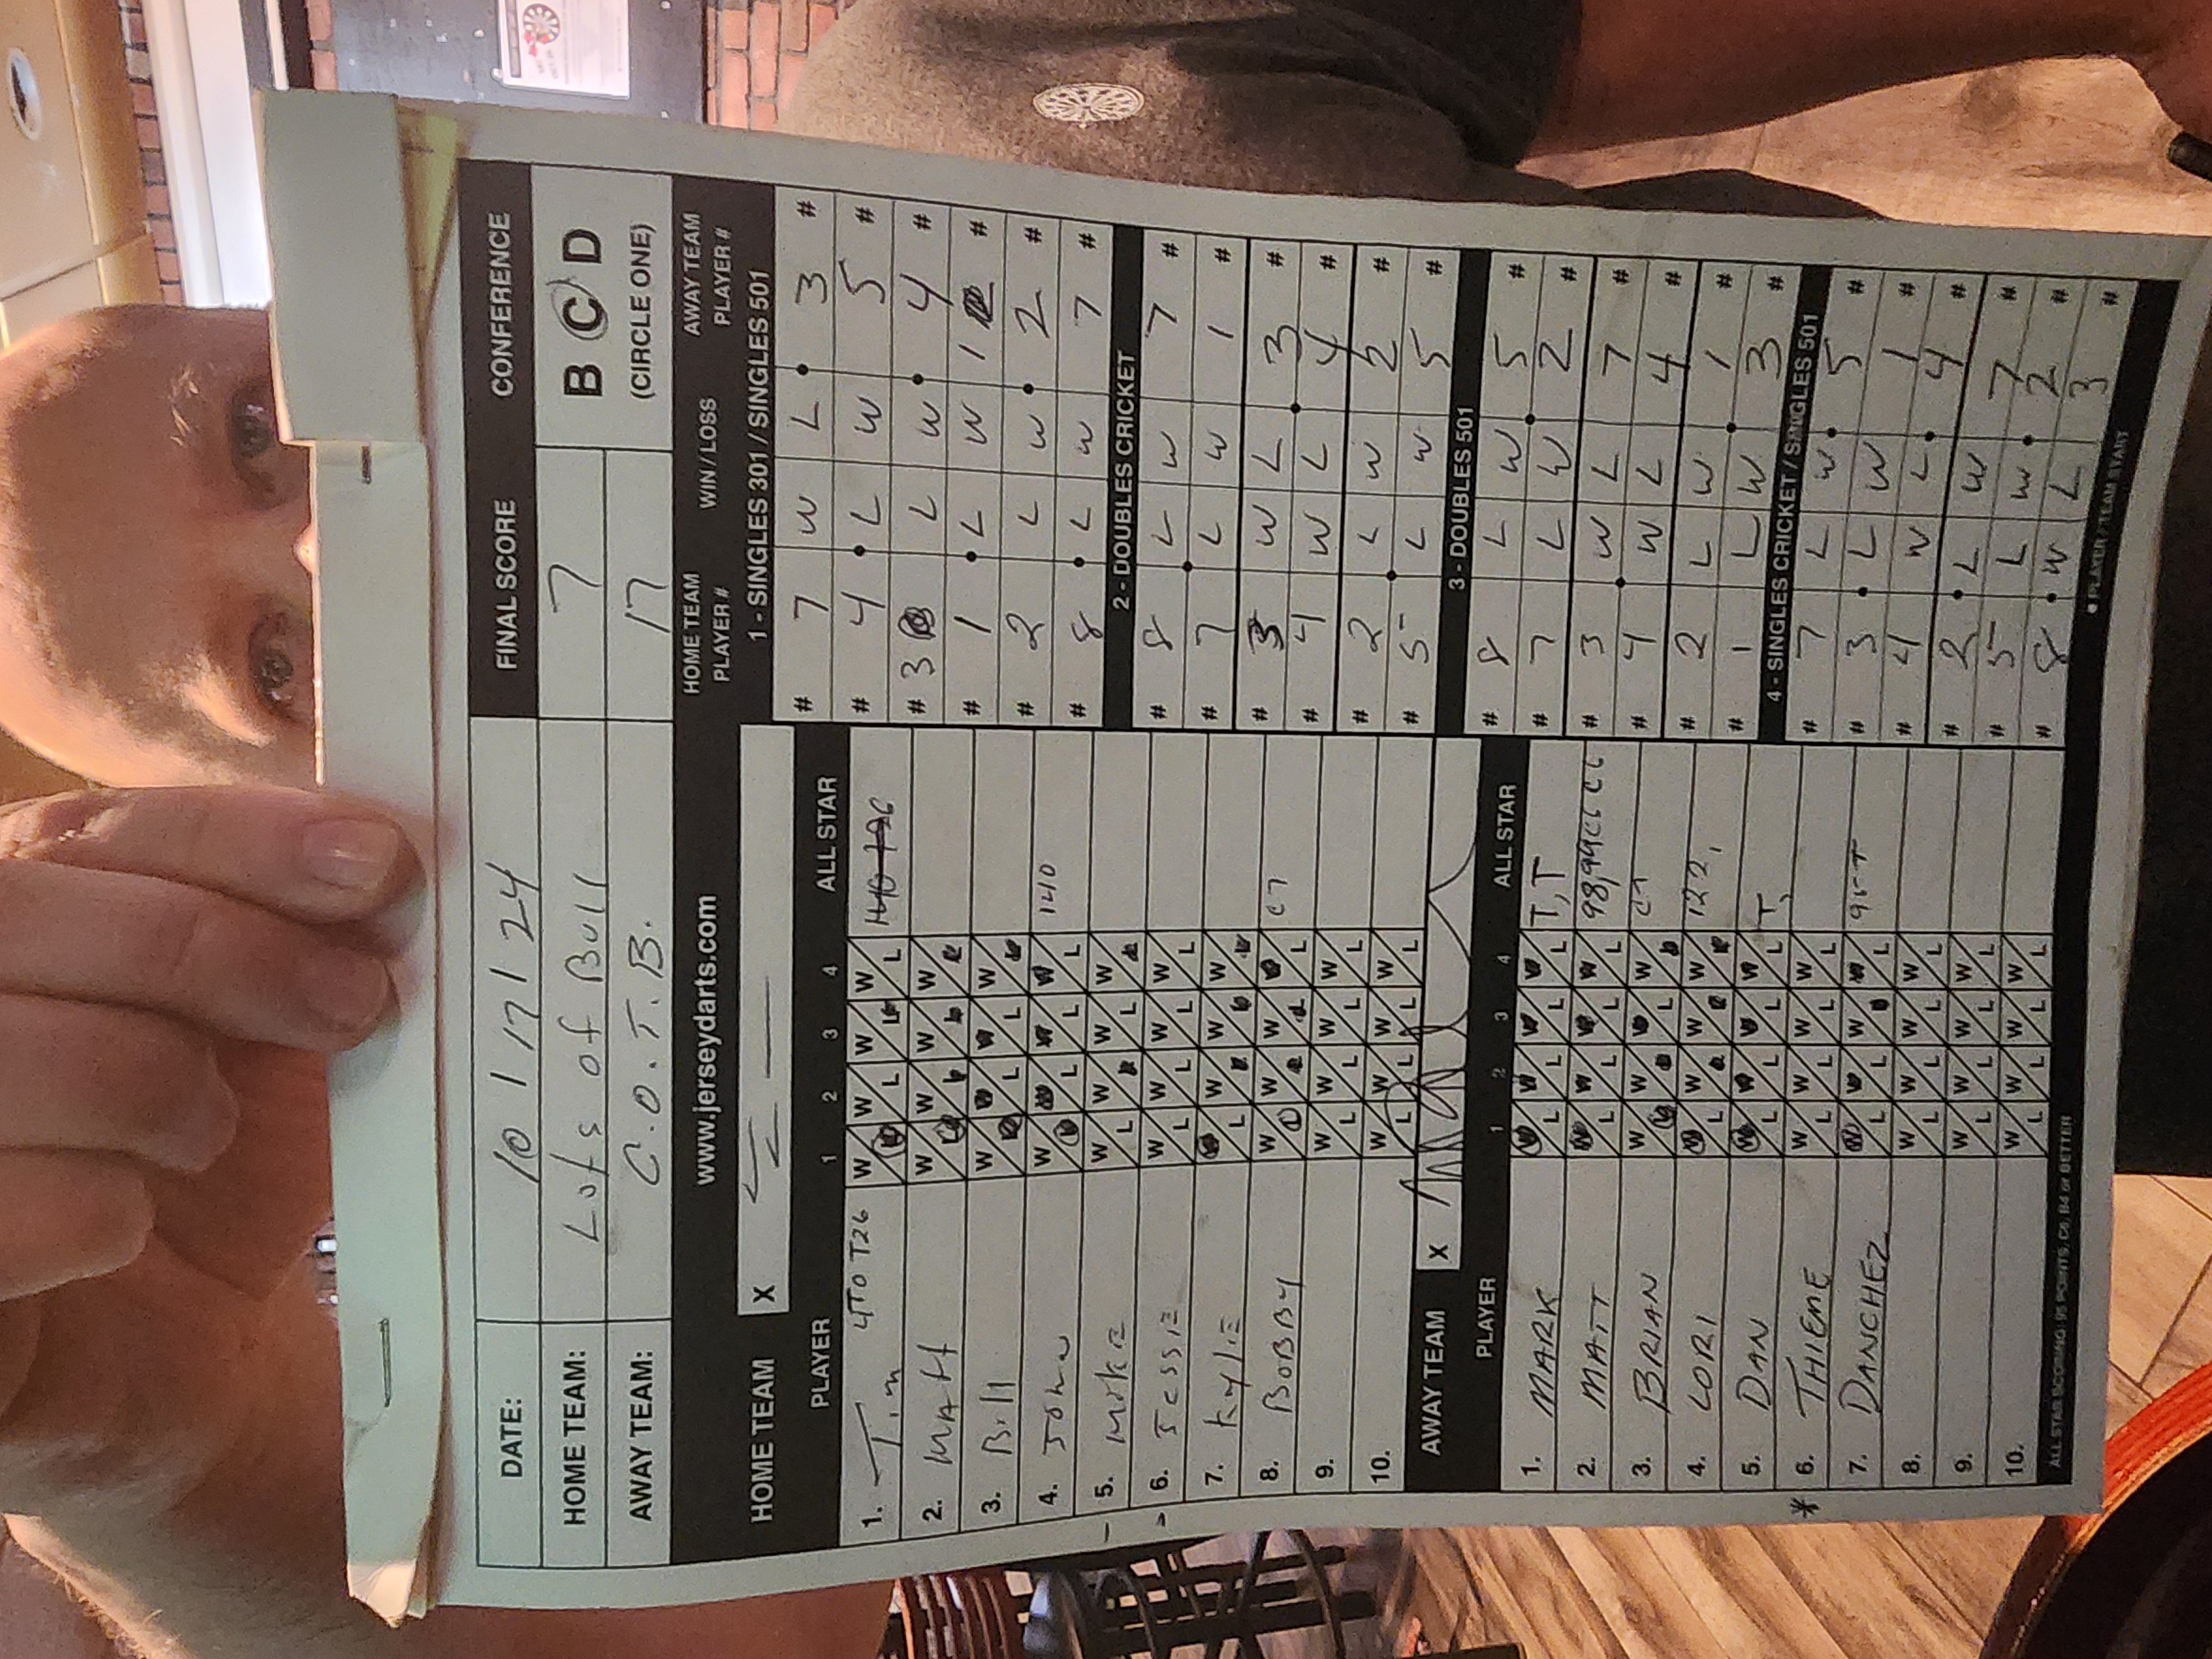 DATE: 10 / 17 / 24 FINAL SCORE CONFERENCE
HOME TEAM: Lots of Bull 7 B C D
AWAY TEAM: C.O.T.B. 17 (CIRCLE ONE)
www.jerseydarts.com
HOME TEAM X
PLAYER 1 2 3 4 ALL STAR
1. Tim 4TO T26 W L W L W L W L
2. Matt W W W W
3. Bill W L L W
4. John W L L L 140
5. Mike W L W W L W
6. Jessie W L W L W L W L
7. Kylie L W W W
8. BOBBY W W W L C7
9. W L W L W L W L
10. W L W L W L W L
AWAY TEAM X
PLAYER 1 2 3 4 ALL STAR
1. MARK L L L L T, T
2. MATT L L L L 98, 99 C6 C6
3. BRIAN W W L W C7
4. LORI L W W W 122,
5. DAN L L L L T,
* 6. THIEME W L W L W L W L
7. DANCHEZ L L W L 95-T
8. W L W L W L W L
9. W L W L W L W L
10. W L W L W L W L
ALL STAR SCORING: 95 POINTS, C6, B4 or BETTER
HOME TEAM PLAYER # WIN / LOSS AWAY TEAM PLAYER #
1 - SINGLES 301 / SINGLES 501
# 7 W L 3 #
# 4 L W 5 #
# 3 L W 4 #
# 1 L W 1 #
# 2 L W 2 #
# 8 L W 7 #
2 - DOUBLES CRICKET
# 8 L W 7 #
# 7 L W 1 #
# 3 W L 3 #
# 4 W L 4 #
# 2 L W 2 #
# 5 L W 5 #
3 - DOUBLES 501
# 8 L W 5 #
# 7 L W 2 #
# 3 W L 7 #
# 4 W L 4 #
# 2 L W 1 #
# 1 L W 3 #
4 - SINGLES CRICKET / SINGLES 501
# 7 L W 5 #
# 3 L W 1 #
# 4 W L 4 #
# 2 L W 7 #
# 5 L W 2 #
# 8 W L 3 #
● PLAYER / TEAM START